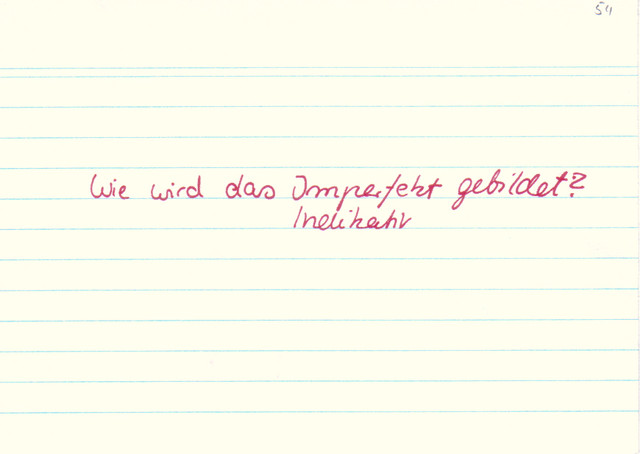 54
Wie wird das Imperfekt gebildet?
Indikativ